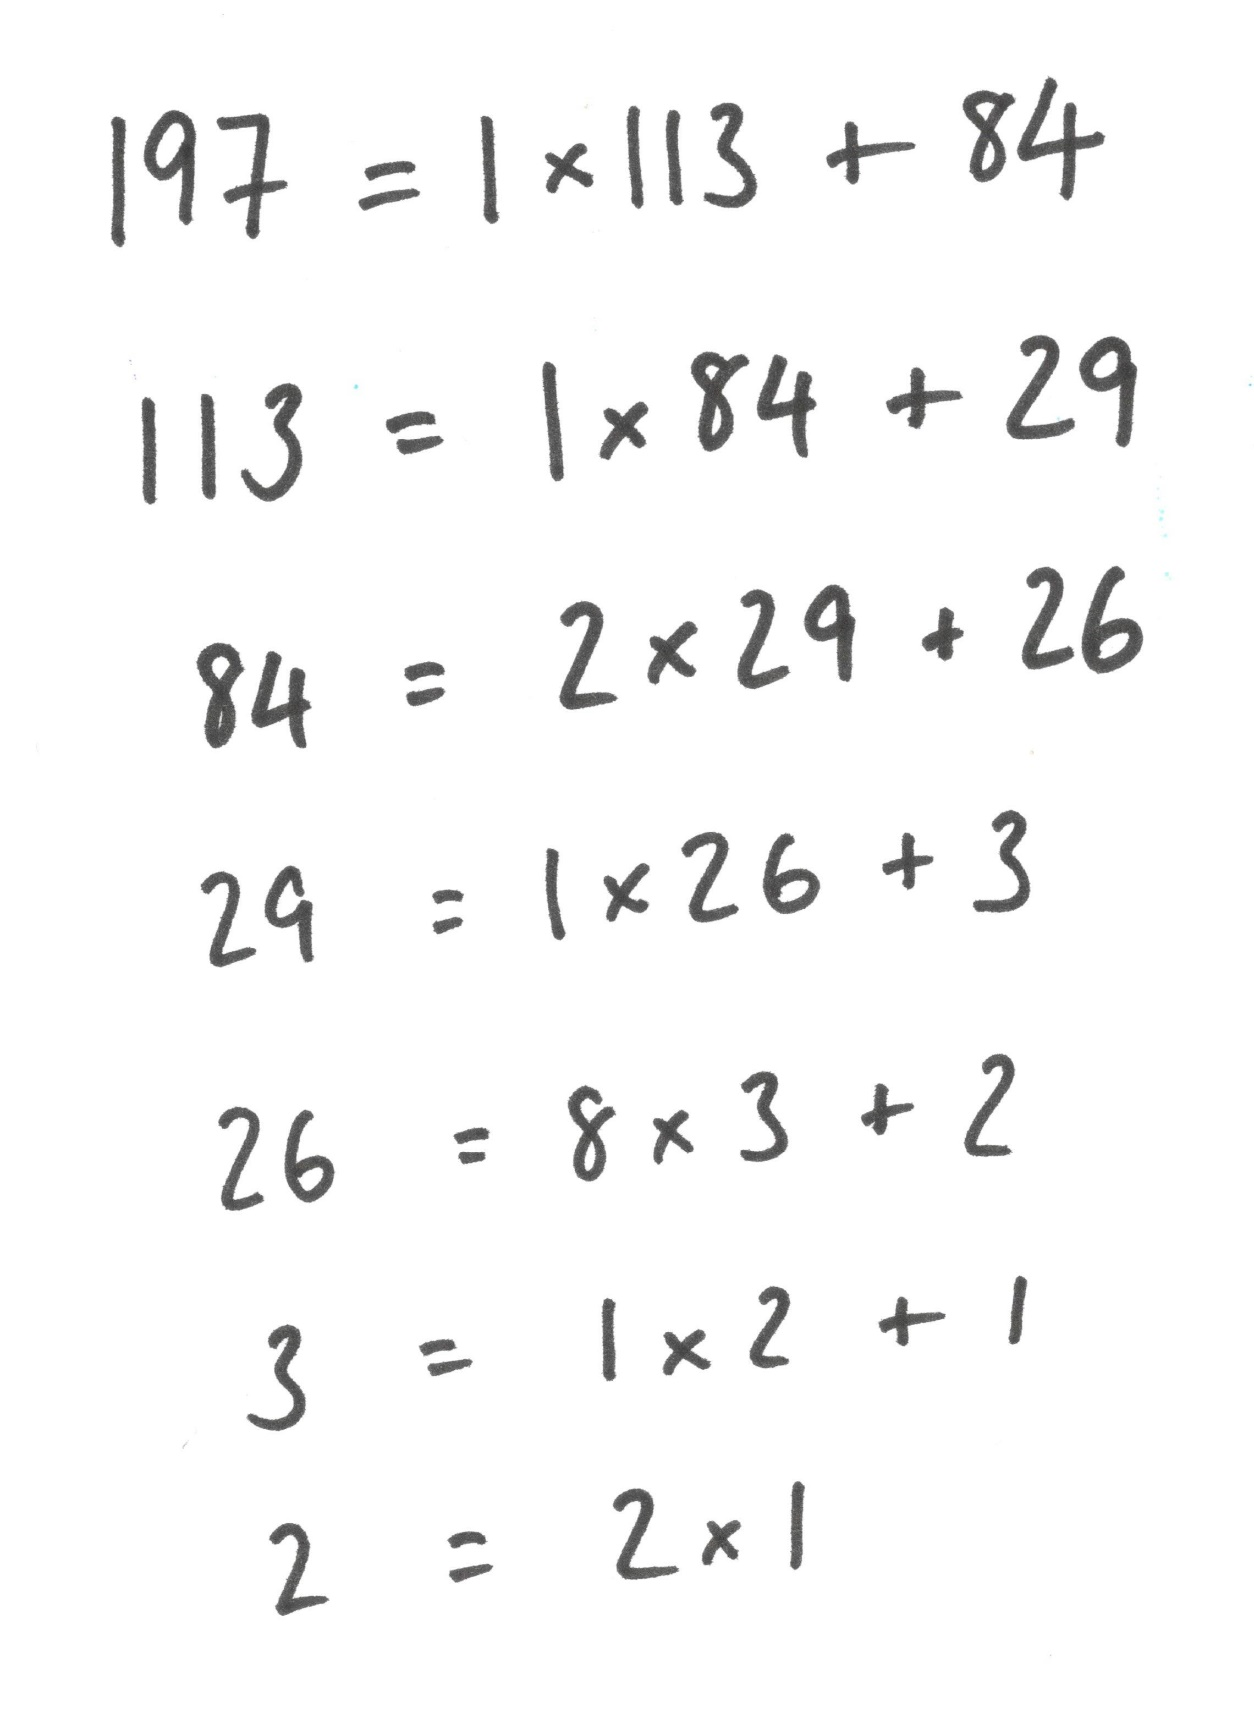 197 = 1 × 113 + 84
113 = 1 × 84 + 29
84 = 2 × 29 + 26
29 = 1 × 26 + 3
26 = 8 × 3 + 2
3 = 1 × 2 + 1
2 = 2 × 1